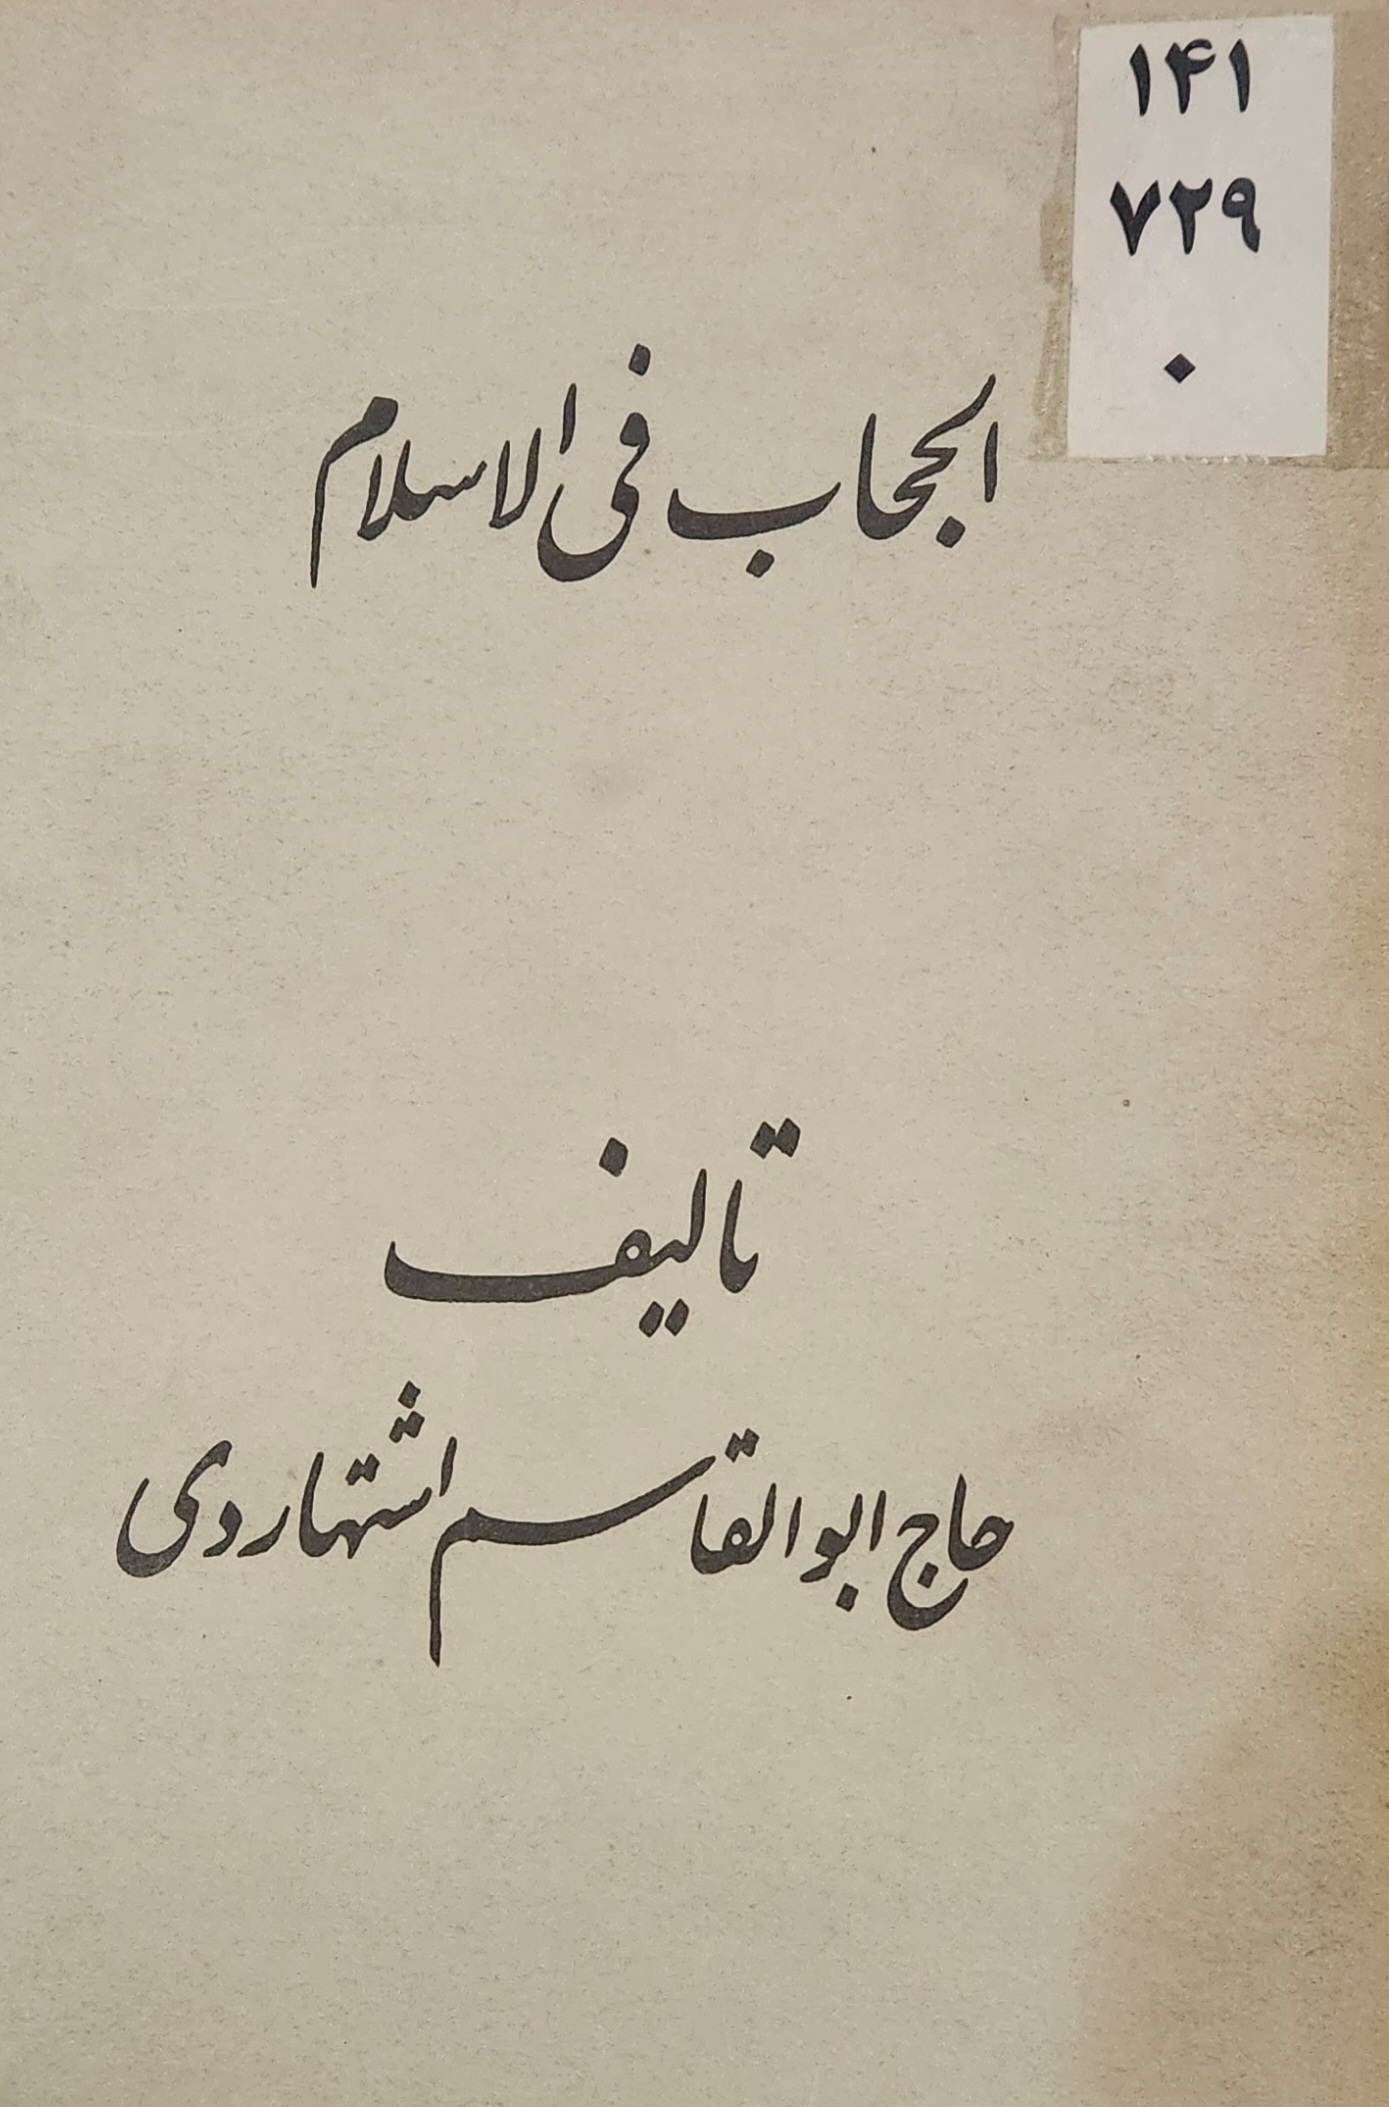 ۱۴۱
۷۲۹
۰
الحجاب فی الاسلام
تالیف
حاج ابوالقاسم اشتهاردی